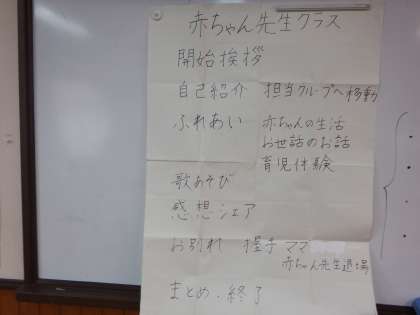 赤ちゃん先生クラス
開始挨拶
自己紹介 担当グループへ移動
ふれあい 赤ちゃんの生活
お世話のお話
育児体験
歌あそび
感想シェア
お別れ 握手 ママ
赤ちゃん先生退場
まとめ・終了